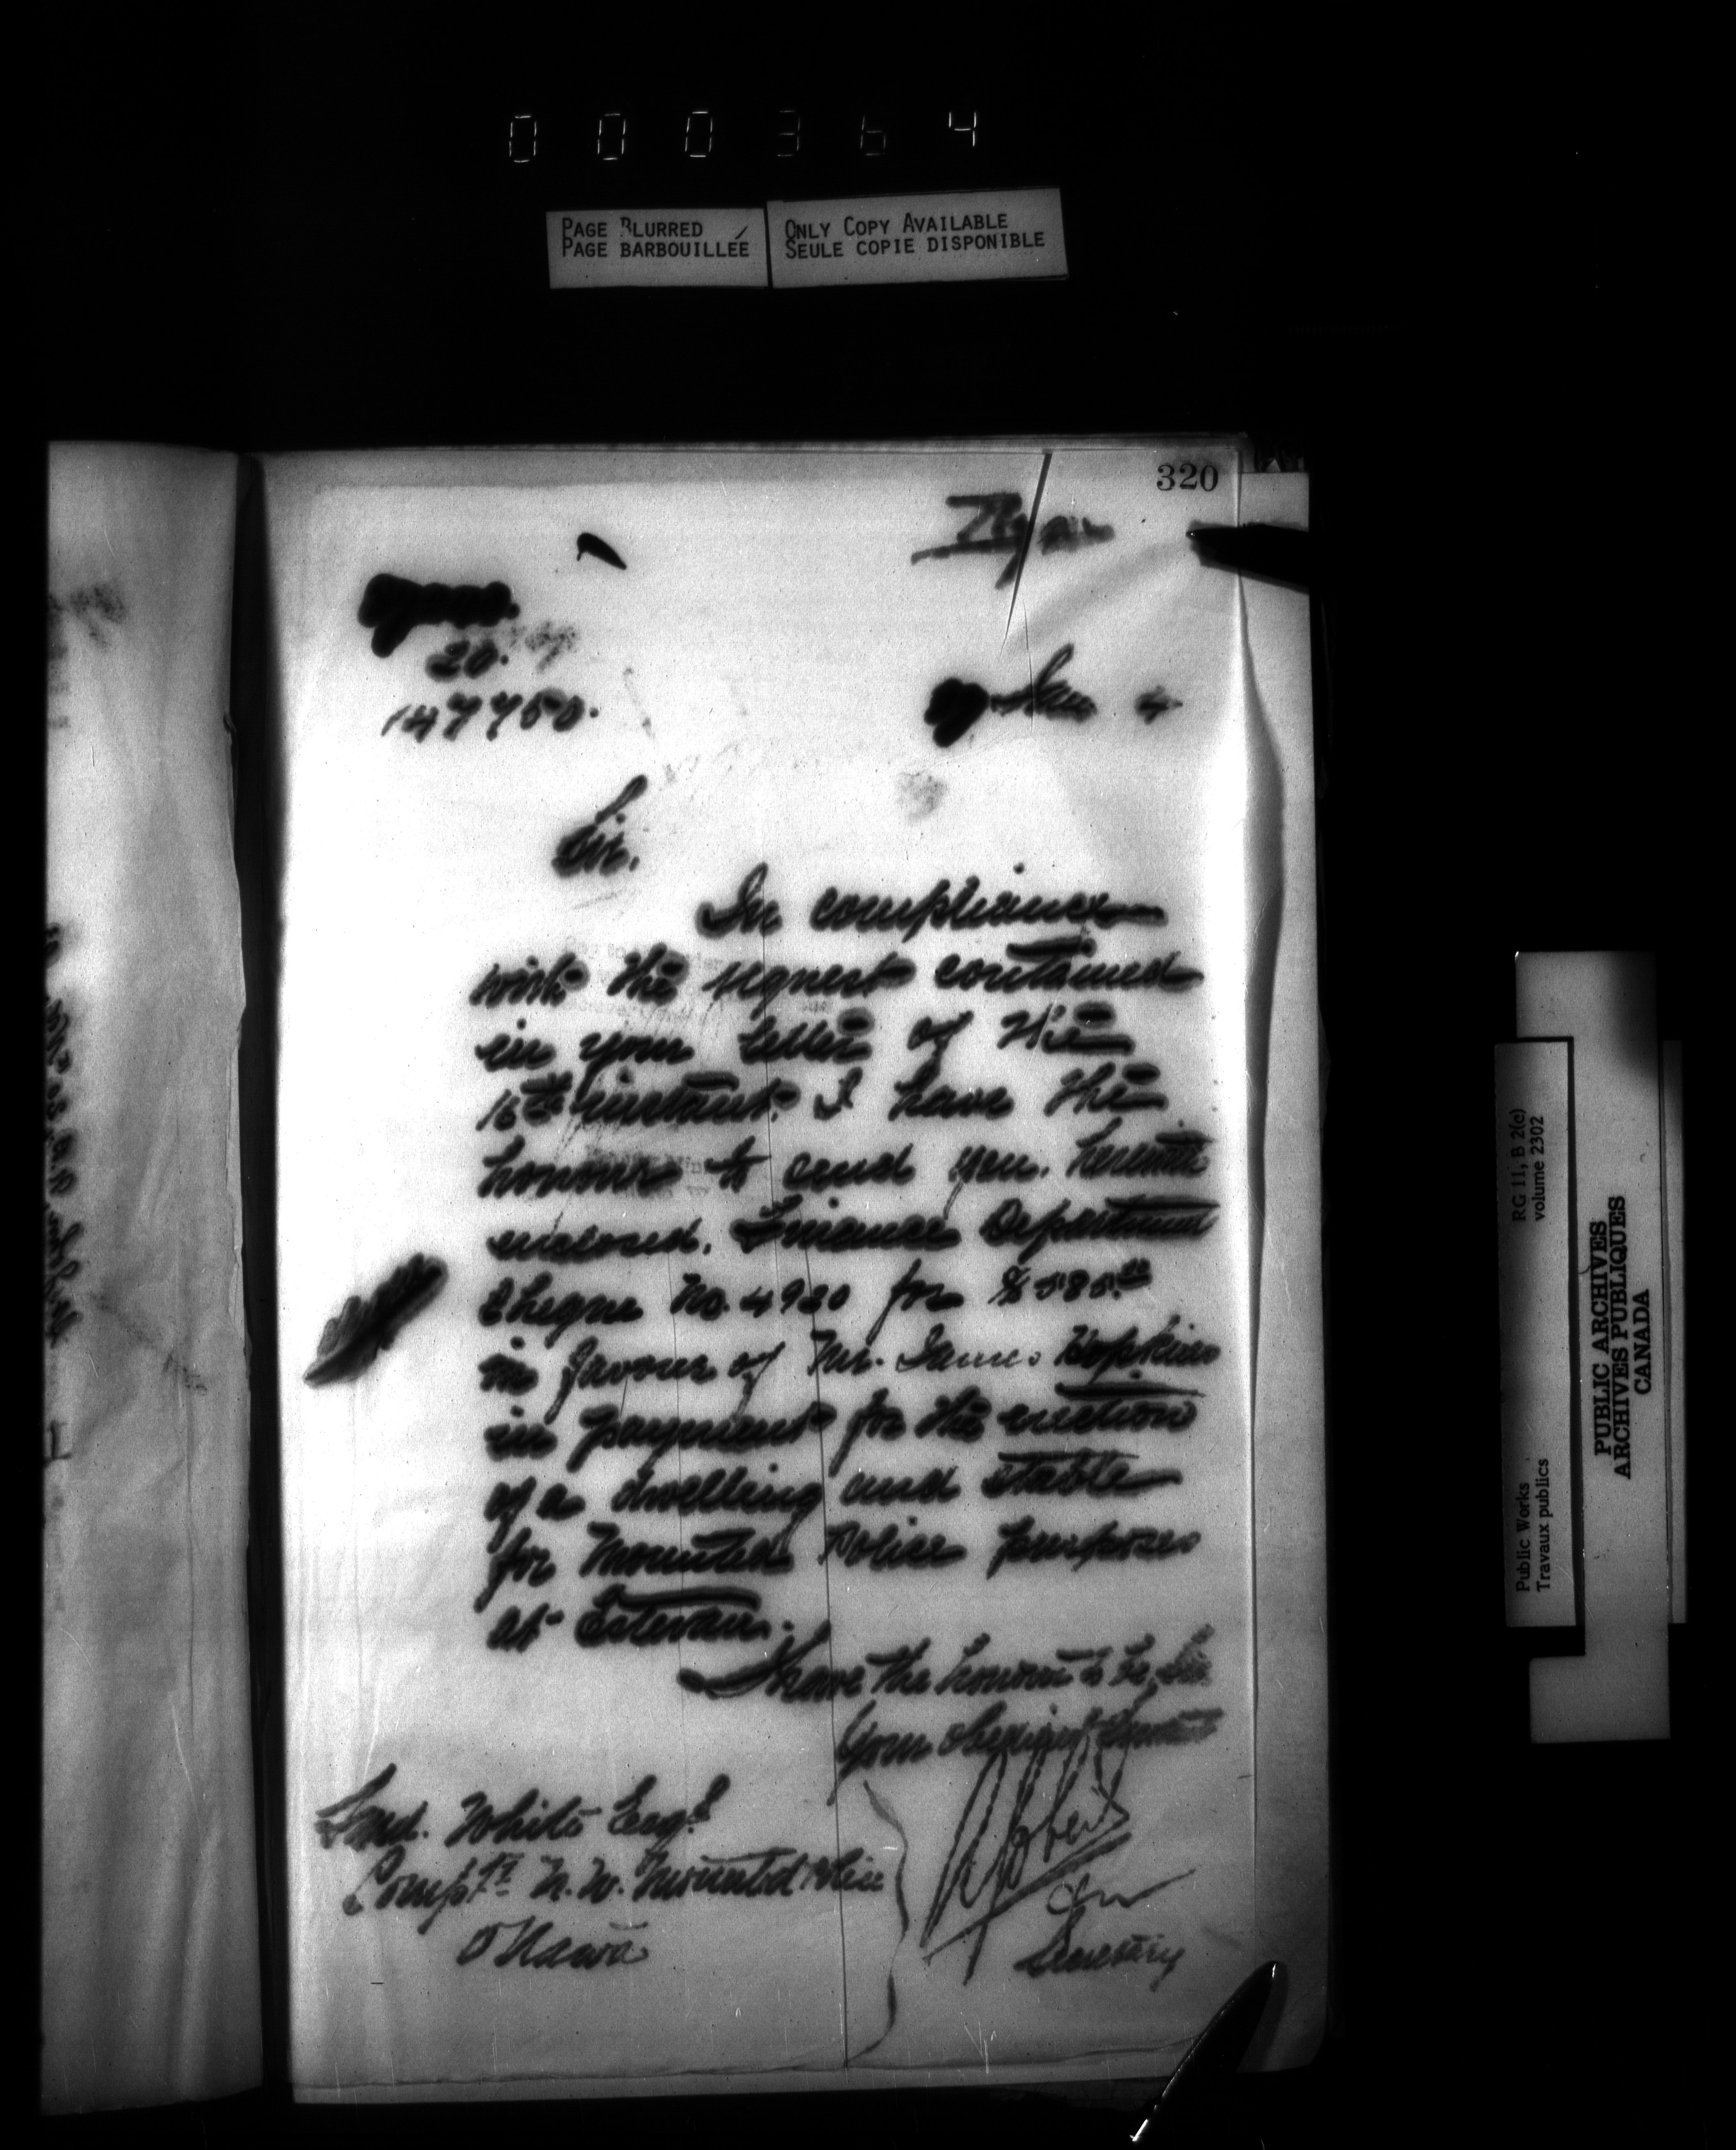 000364
PAGE BLURRED
PAGE BARBOUILLÉE
ONLY COPY AVAILABLE
SEULE COPIE DISPONIBLE
320
20.
147750.
Sir.
In compliance
with the request contained
in your letter of the
16th instant. I have the
honour to send you. herewith
enclosed. Finance Department
Cheque No. 4930 for $585.00
in favour of Mr. James Hopkins
in payment for the erection
of a dwelling and stable
for Mounted Police purposes
at Estevan.
I have the honour to be, Sir
Your obedient Servant
Fred. White Esqr
Compt N. W. Mounted Police
Ottawa
Secretary
RG 11, B 2(c)
volume 2302
Public Works
Travaux publics
PUBLIC ARCHIVES
ARCHIVES PUBLIQUES
CANADA